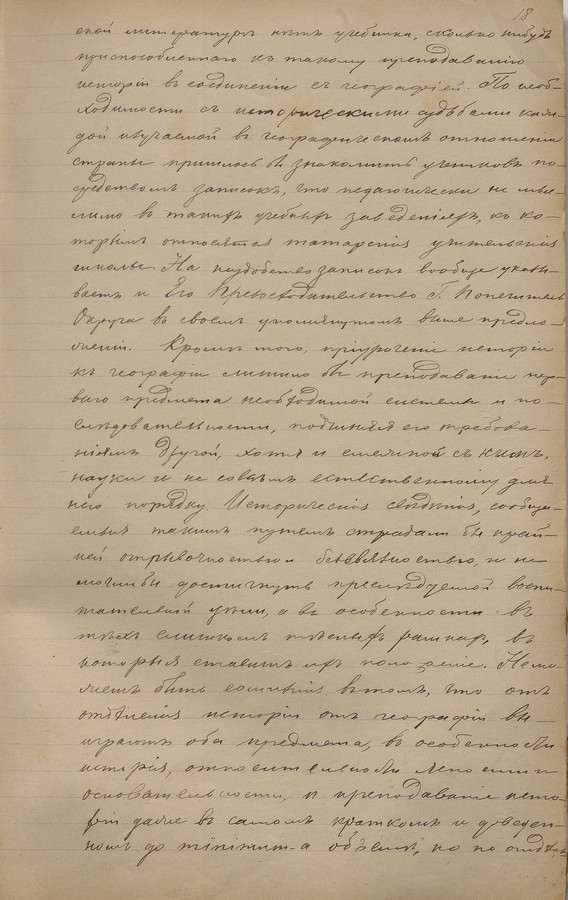 18
ской литературѣ нѣтъ учебника, сколько нибудь
приспособленнаго къ такому преподаванію
исторіи въ соединеніи съ географіей. По необ-
ходимости съ историческими судьбами каж-
дой изучаемой въ географическомъ отношеніи
страны пришлось бы знакомить учениковъ по-
средствомъ записокъ, что педагогически не мыс-
лимо въ такихъ учебныхъ заведеніяхъ, къ ко-
торымъ относятся татарскія учительскія
школы. На неудобство записокъ вообще указы-
ваетъ и Его Превосходительство Г. Попечитель
Округа въ своемъ упомянутомъ выше предло-
женіи. Кромѣ того, пріуроченіе исторіи
къ географіи лишило бы преподаваніе пер-
ваго предмета необходимой системы и по-
слѣдовательности, подчиняя его требова-
ніямъ другой, хотя и смежной съ нимъ,
науки и не совсѣмъ естественному для
него порядку. Историческія свѣдѣнія, сообща-
емыя такимъ путемъ страдали бы край-
ней отрывочностью и безсвязностью, и не
могли бы достигнуть преслѣдуемой воспи-
тательной цѣли, а въ особенности въ
тѣхъ слишкомъ тѣсныхъ рамкахъ, въ
которыя ставитъ ихъ положеніе. Не мо-
жетъ быть сомнѣнія въ томъ, что отъ
отдѣленія исторіи отъ географіи вы-
играютъ оба предмета, въ особенности
исторія, относительности ясности и
основательности, и преподаваніе исто-
ріи даже въ самомъ краткомъ и доведен-
номъ до minimum-а объемѣ, но по отдѣль-